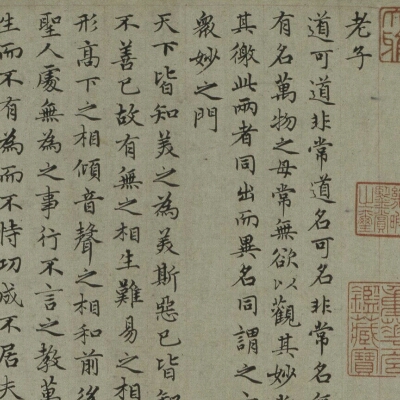 老子
道可道非常道名可名非常名
有名萬物之母常無欲以觀其妙
其徼此兩者同出而異名同謂之
眾妙之門
天下皆知美之為美斯惡已皆知
不善已故有無之相生難易之相
形高下之相傾音聲之相和前後
聖人處無為之事行不言之教萬
生而不有為而不恃功成不居夫
鑑藏寶